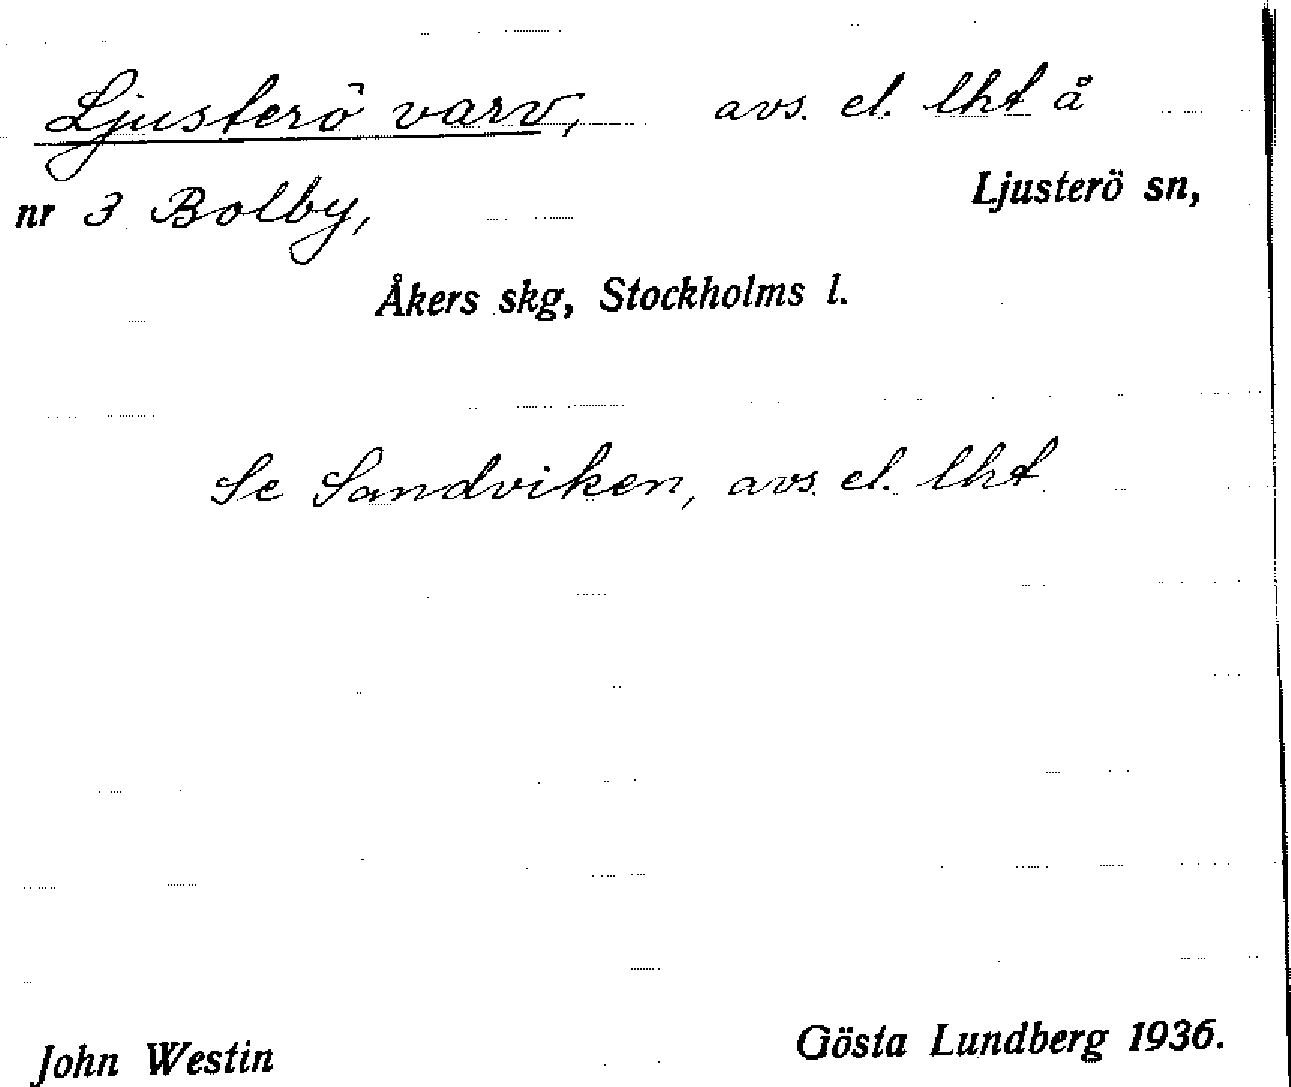 Ljusterö varv, avs. el. lht å
nr 3 Bolby, Ljusterö sn,
Åkers skg, Stockholms l.
Se Sandviken, avs. el. lht
John Westin Gösta Lundberg 1936.